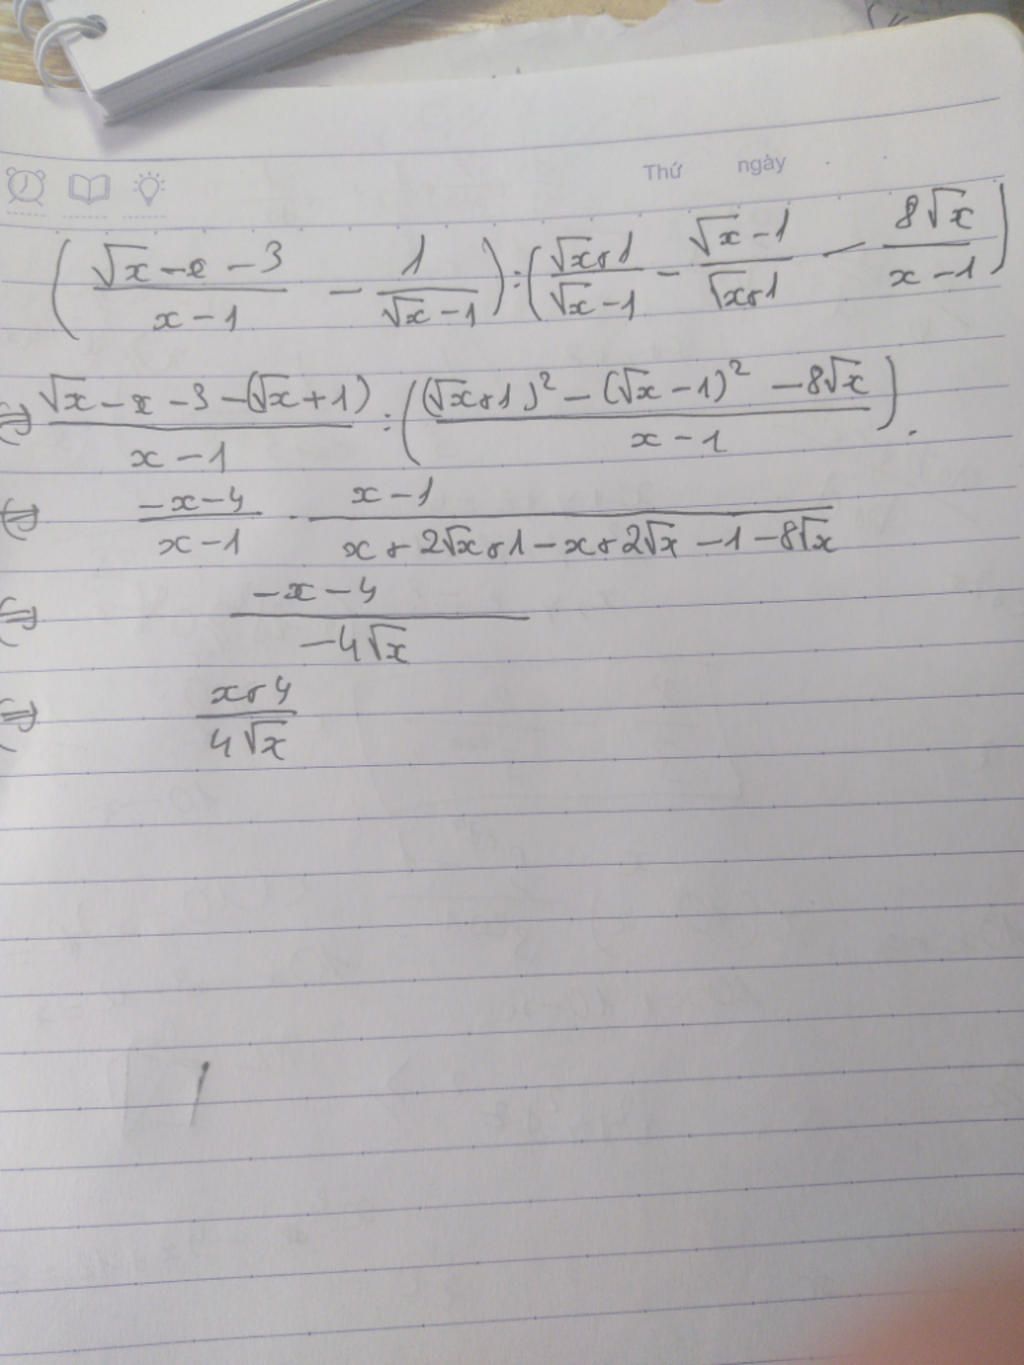 Thứ ngày
( (√x - x - 3)/(x - 1) - 1/(√x - 1) ) : ( (√x + 1)/(√x - 1) - (√x - 1)/(√x + 1) - 8√x/(x - 1) )
(=) (√x - x - 3 - (√x + 1))/(x - 1) : ( ((√x + 1)² - (√x - 1)² - 8√x)/(x - 1) ) .
(=) (-x - 4)/(x - 1) · (x - 1)/(x + 2√x + 1 - x + 2√x - 1 - 8√x)
(=) (-x - 4)/(-4√x)
(=) (x + 4)/(4√x)